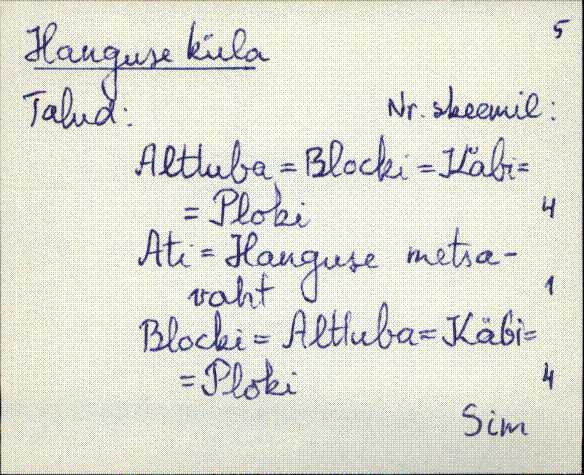 5
Hanguse küla
Talud: Nr. skeemil:
Alttuba = Blocki = Käbi =
= Ploki 4
Ati = Hanguse metsa-
vaht 1
Blocki = Alttuba = Käbi =
= Ploki 4
Sim